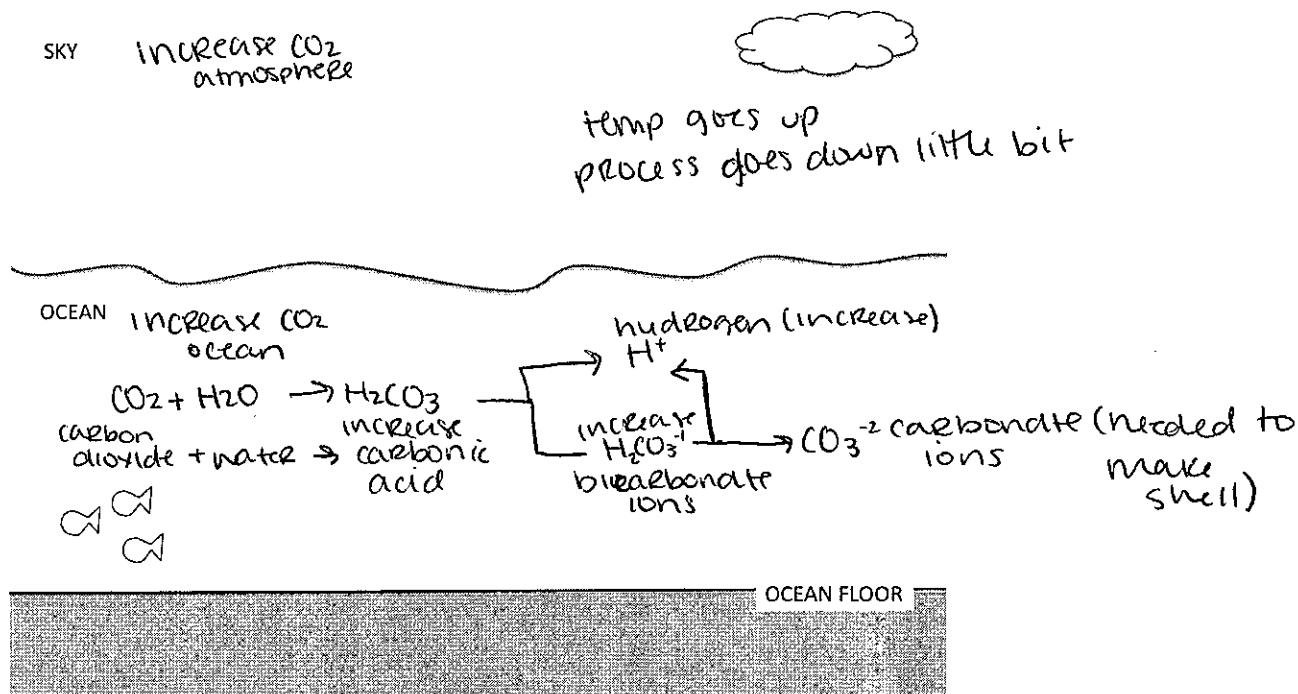 SKY
increase CO₂
atmosphere
temp goes up
process goes down little bit
OCEAN
increase CO₂
ocean
hudrogen (increase)
H⁺
CO₂ + H₂O → H₂CO₃
carbon
dioxide + water → increase
carbonic
acid
increase
H₂CO₃⁻¹
bicarbondate
ions
→ CO₃⁻² carbondate (needed to
ions make
shell)
OCEAN FLOOR